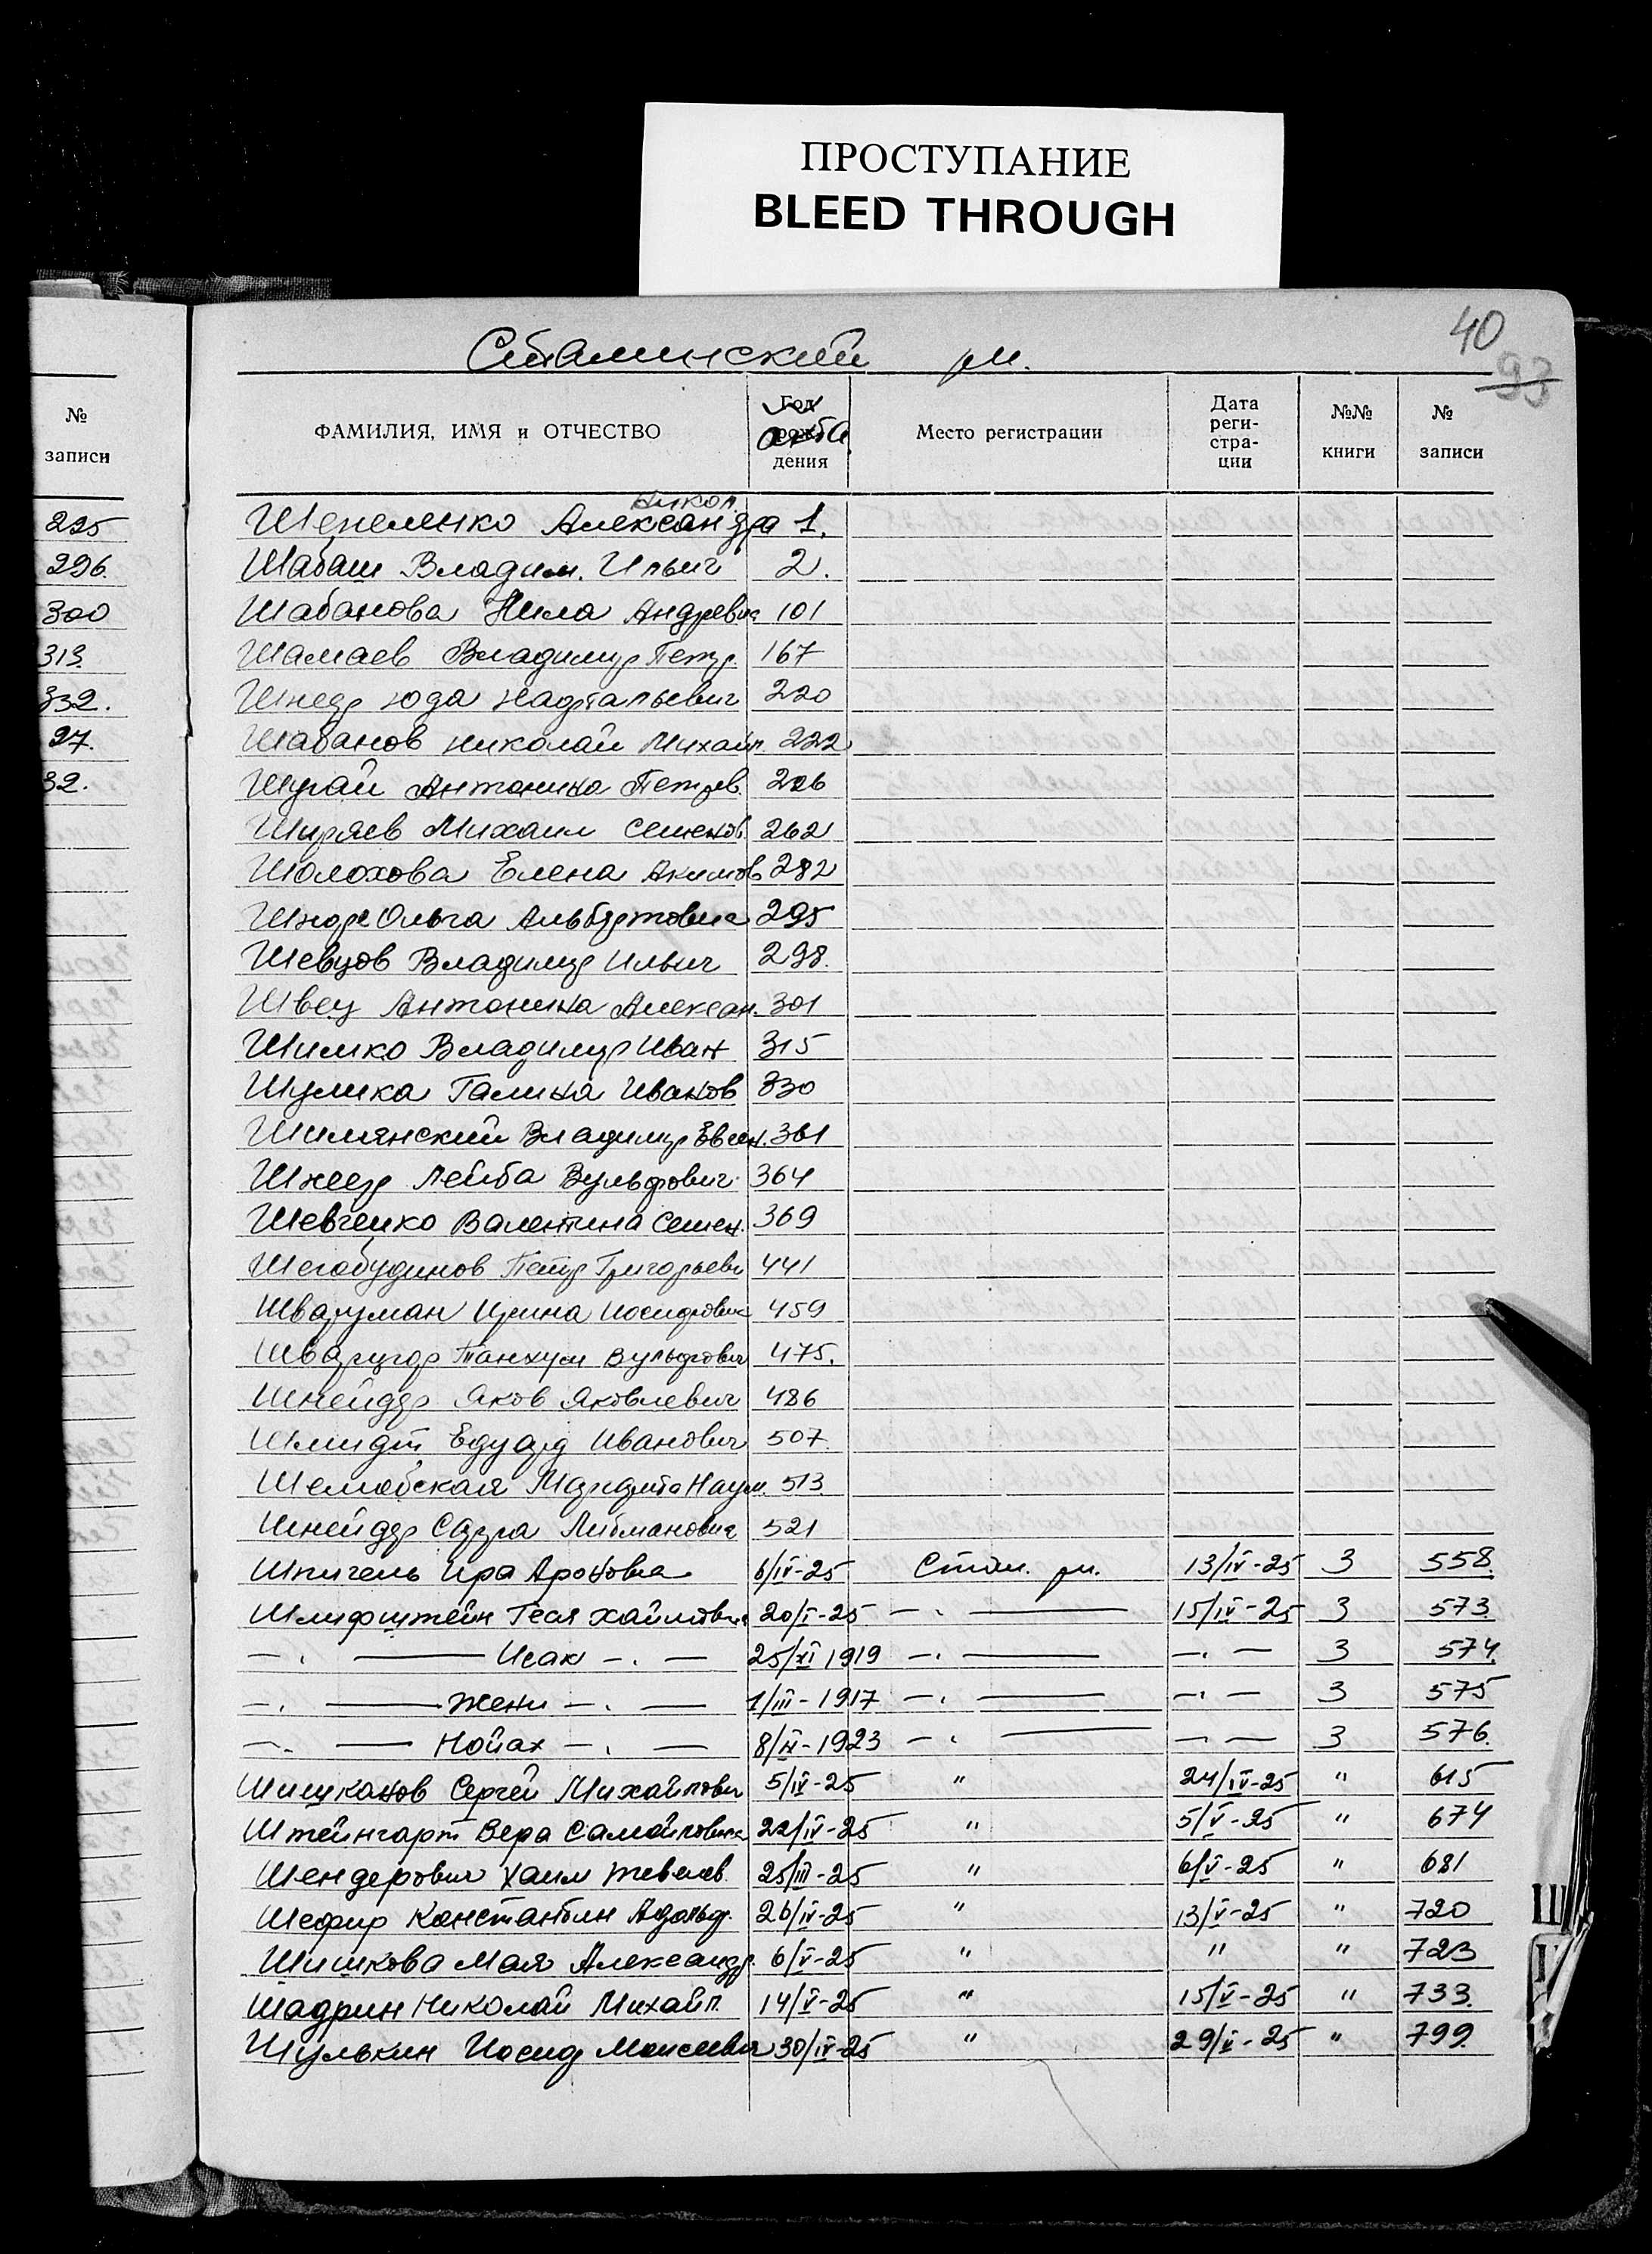 ПРОСТУПАНИЕ
BLEED THROUGH
40
93
Сталинский рн.
№ записи
ФАМИЛИЯ, ИМЯ и ОТЧЕСТВО Год рождения акта Место регистрации Дата регистрации №№ книги № записи
225
296.
300
313.
332.
27.
32.
Никол.
Шепеленко Александра 1.
Шабаш Владим. Ильич 2.
Шабанова Нила Андревна 101
Шамаев Владимир Петр. 167
Шнеер Юда Нафтальевич 220
Шабанов Николай Михайл. 222
Шугай Антонина Петров. 226
Ширяев Михаил Семенов. 262
Шолохова Елена Акимов 282
Ольга Альбертовна 295
Шевцов Владимир Ильич 298.
Швец Антонина Алексан. 301
Шимко Владимир Иван 315
Шулика Галина Иванов 330
Шилянский Владимир Евген. 361
Шнеер Лейба Вульфович 364
Шевченко Валентина Семен. 369
Шегабудинов Петр Григорьевич 441
Шварцман Ирина Иосифовна 459
Танхум Вульфович 475.
Шнейдер Яков Яковлевич 486
Шмидт Едуард Иванович 507
Маргарита Наум. 513.
Шнейдер Сарра Либмановна 521
Шпигель Ира Ароновна 6/IV-25 Стал. рн. 13/IV-25 3 558.
Шлифштейн Геся Хаимовна 20/I-25 —"— 15/IV-25 3 573.
—"— Исак —"— 25/XI 1919 —"— —"— 3 574.
—"— Жени —"— 1/III-1917 —"— —"— 3 575
—"— Нойах —"— 8/IX-1923 —"— —"— 3 576.
Шишканов Сергей Михайлович 5/IV-25 " 24/IV-25 " 615
Штейнгарт Вера Самойловна 22/IV-25 " 5/V-25 " 674
Шендерович Хаим Тевелев. 25/III-25 " 6/V-25 " 681
Шефир Константин Адольф. 26/IV-25 " 13/V-25 " 720
Шишкова Мая Александр. 6/V-25 " " " 723
Шадрин Николай Михайл. 14/V-25 " 15/V-25 " 733.
Шулькин Иосиф Моисеевич 30/IV-25 " 29/V-25 " 799.